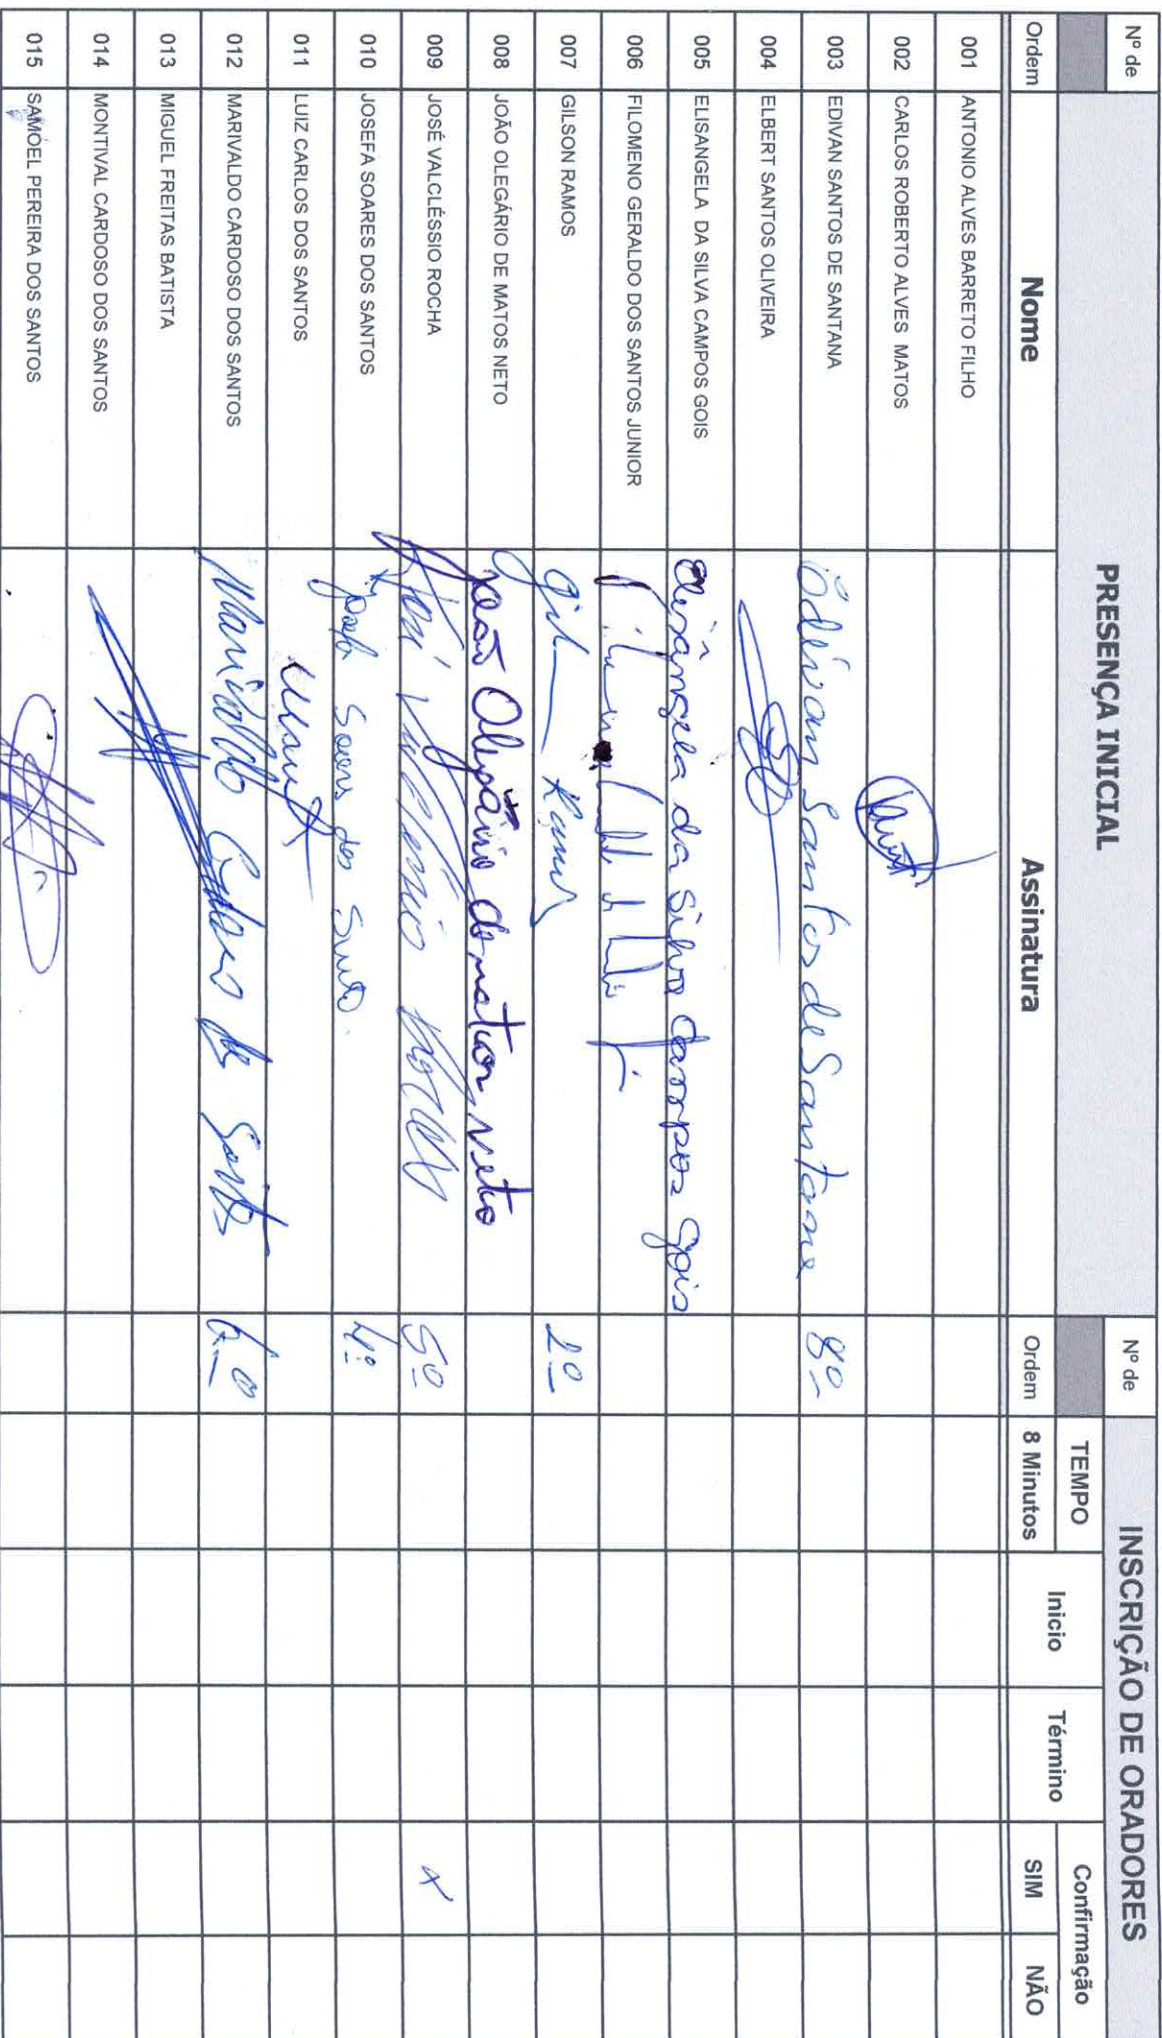 Nº de
PRESENÇA INICIAL
Nº de
INSCRIÇÃO DE ORADORES
TEMPO
Confirmação
Ordem
Nome
Assinatura
Ordem
8 Minutos
Inicio
Término
SIM
NÃO
001 ANTONIO ALVES BARRETO FILHO
002 CARLOS ROBERTO ALVES MATOS
003 EDIVAN SANTOS DE SANTANA Edivan Santos de Santana 8º
004 ELBERT SANTOS OLIVEIRA
005 ELISANGELA DA SILVA CAMPOS GOIS Elisângela da Silva Campos Gois
006 FILOMENO GERALDO DOS SANTOS JUNIOR
007 GILSON RAMOS Gilson Ramos
008 JOÃO OLEGÁRIO DE MATOS NETO João Olegário de matos neto
009 JOSÉ VALCLÉSSIO ROCHA José Valcléssio Rocha 5º x
010 JOSEFA SOARES DOS SANTOS Josefa Soares dos Santos 4º
011 LUIZ CARLOS DOS SANTOS
012 MARIVALDO CARDOSO DOS SANTOS Marivaldo Cardoso dos Santos 6º
013 MIGUEL FREITAS BATISTA
014 MONTIVAL CARDOSO DOS SANTOS
015 SAMÓEL PEREIRA DOS SANTOS